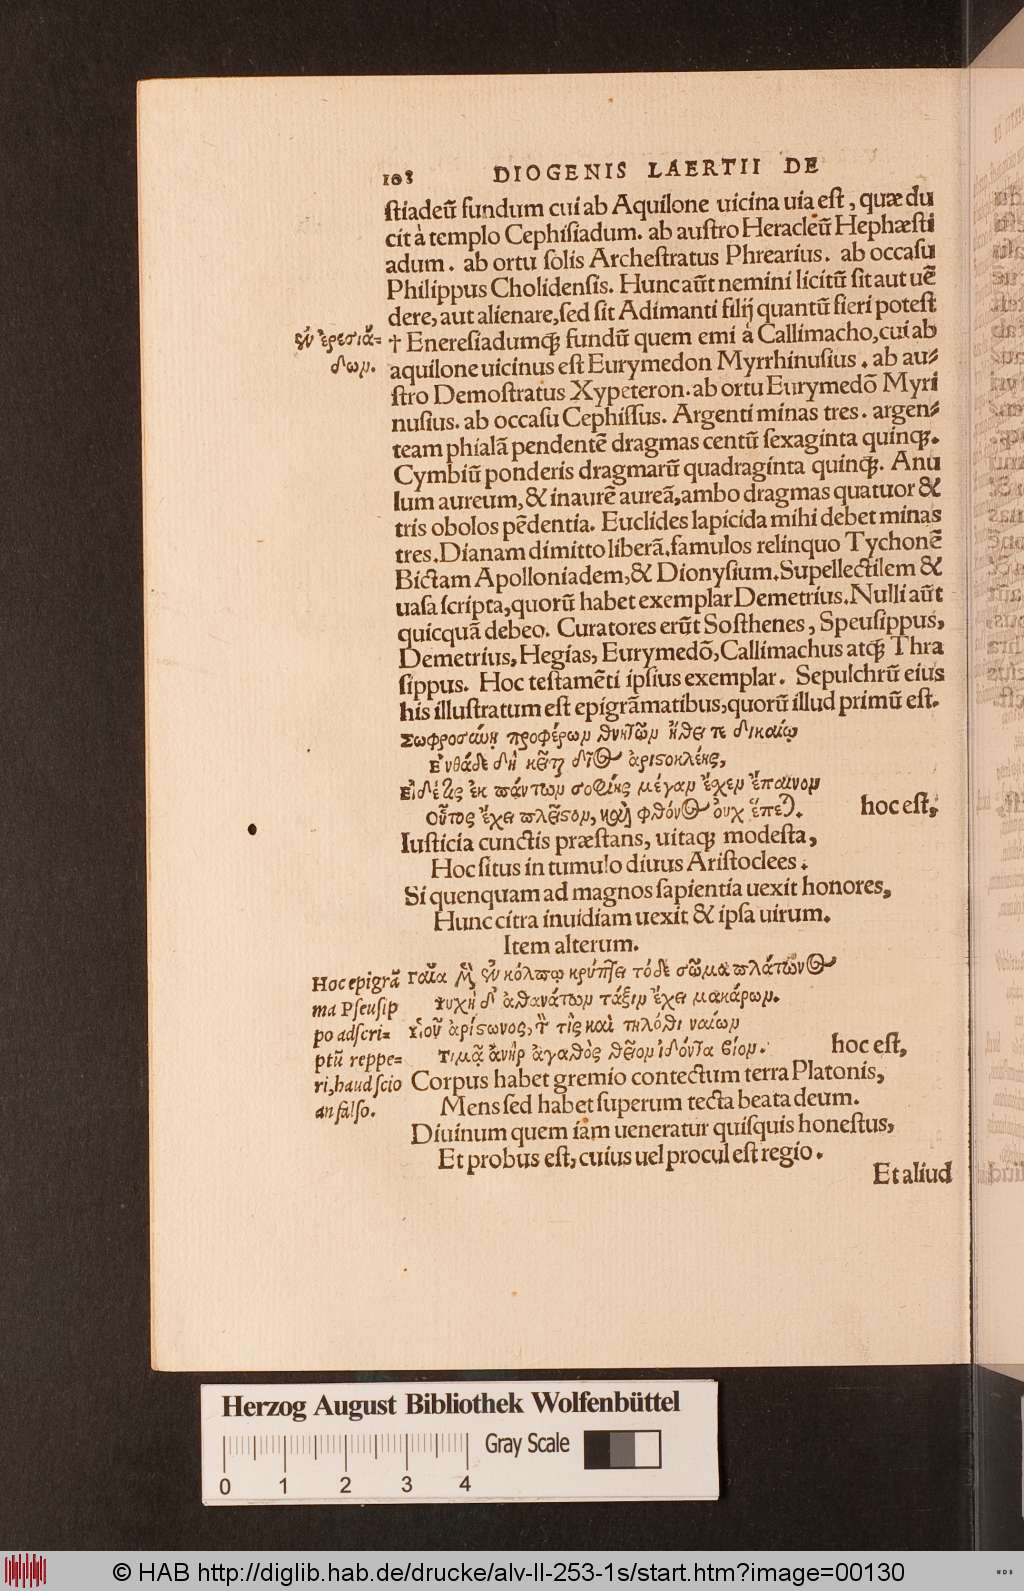 108 DIOGENIS LAERTII DE
ſtiadeū fundum cui ab Aquilone uicina uia eſt, quæ du
cit à templo Cephiſiadum. ab auſtro Heracleū Hephæſti
adum. ab ortu ſolis Archeſtratus Phrearius. ab occaſu
Philippus Cholidenſis. Hunc aūt nemini licitū ſit aut uē
dere, aut alienare, ſed ſit Adimanti filij quantū fieri poteſt
ἐν ἐρεσιά=
δωμ.
† Enereſiadumq; fundū quem emi à Callimacho, cui ab
aquilone uicinus eſt Eurymedon Myrrhinuſius. ab au=
ſtro Demoſtratus Xypeteron. ab ortu Eurymedō Myri
nuſius. ab occaſu Cephiſſus. Argenti minas tres. argen=
team phialā pendentē dragmas centū ſexaginta quinq;.
Cymbiū ponderis dragmarū quadraginta quinq;. Anu
lum aureum, & inaurē aureā, ambo dragmas quatuor &
tris obolos pēdentia. Euclides lapicida mihi debet minas
tres. Dianam dimitto liberā. famulos relinquo Tychonē
Bictam Apolloniadem, & Dionyſium. Supellectilem &
uaſa ſcripta, quorū habet exemplar Demetrius. Nulli aūt
quicquā debeo. Curatores erūt Soſthenes, Speuſippus,
Demetrius, Hegias, Eurymedō, Callimachus atq; Thra
ſippus. Hoc teſtamēti ipſius exemplar. Sepulchrū eius
his illuſtratum eſt epigrāmatibus, quorū illud primū eſt.
Σωφροσύνῃ προφέρωμ θνητῶμ ἤθει τε δικαίῳ
Ἐνθάδε δὴ κεῖται δῖος ἀριστοκλέης,
Εἰ δέ τις ἐκ πάντωμ σοφίης μέγαμ ἔχεμ ἔπαινομ
Οὗτος ἔχει πλεῖστομ, καὶ φθόνος οὐχ ἕπεται. hoc eſt,
Iuſticia cunctis præſtans, uitaq; modeſta,
Hoc ſitus in tumulo diuus Ariſtoclees.
Si quenquam ad magnos ſapientia uexit honores,
Hunc citra inuidiam uexit & ipſa uirum.
Item alterum.
Hoc epigrā
ma Pſeuſip
po adſcri=
ptū reppe=
ri, haud ſcio
an falſo.
Γαῖα μὲν ἐν κόλπῳ κρύπτει τόδε σῶμα πλάτωνος
Ψυχὴ δ' ἀθανάτωμ τάξιμ ἔχει μακάρωμ.
Υἱοῦ ἀρίστωνος, τόν τις καὶ τηλόθι ναίωμ
Τιμᾷ ἀνὴρ ἀγαθὸς θεῖομ ἰδόντα βίομ. hoc eſt,
Corpus habet gremio contectum terra Platonis,
Mens ſed habet ſuperum tecta beata deum.
Diuinum quem iam ueneratur quiſquis honeſtus,
Et probus eſt, cuius uel procul eſt regio.
Et aliud
Herzog August Bibliothek Wolfenbüttel
Gray Scale
0 1 2 3 4
© HAB http://diglib.hab.de/drucke/alv-ll-253-1s/start.htm?image=00130